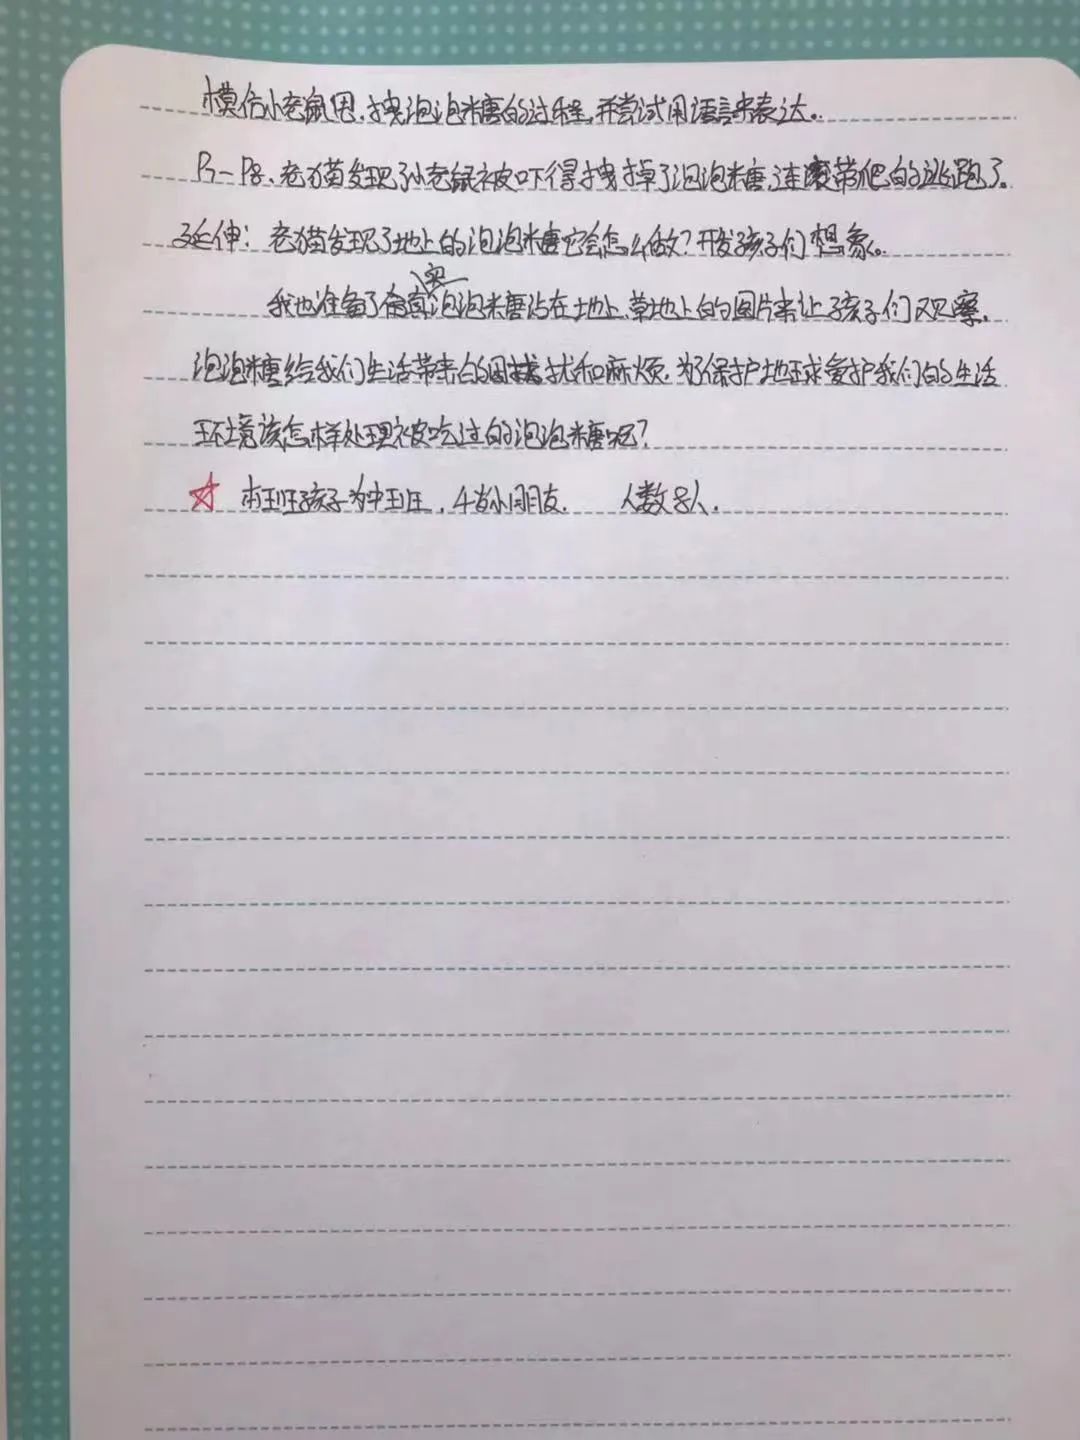 模仿小老鼠甩,拽泡泡糖的过程,并尝试用语言来表达。
P7—P8、老猫发现了小老鼠被吓得拽掉了泡泡糖,连滚带爬的逃跑了。
延伸:老猫发现了地上的泡泡糖它会怎么做?开发孩子们想象。
我也准备了 实 泡泡糖沾在地上、草地上的图片来让孩子们观察,
泡泡糖给我们生活带来的困扰和麻烦,为了保护地球爱护我们的生活
环境该怎样处理被吃过的泡泡糖呢?
☆ 本班孩子为中班,4岁小朋友. 人数8人.